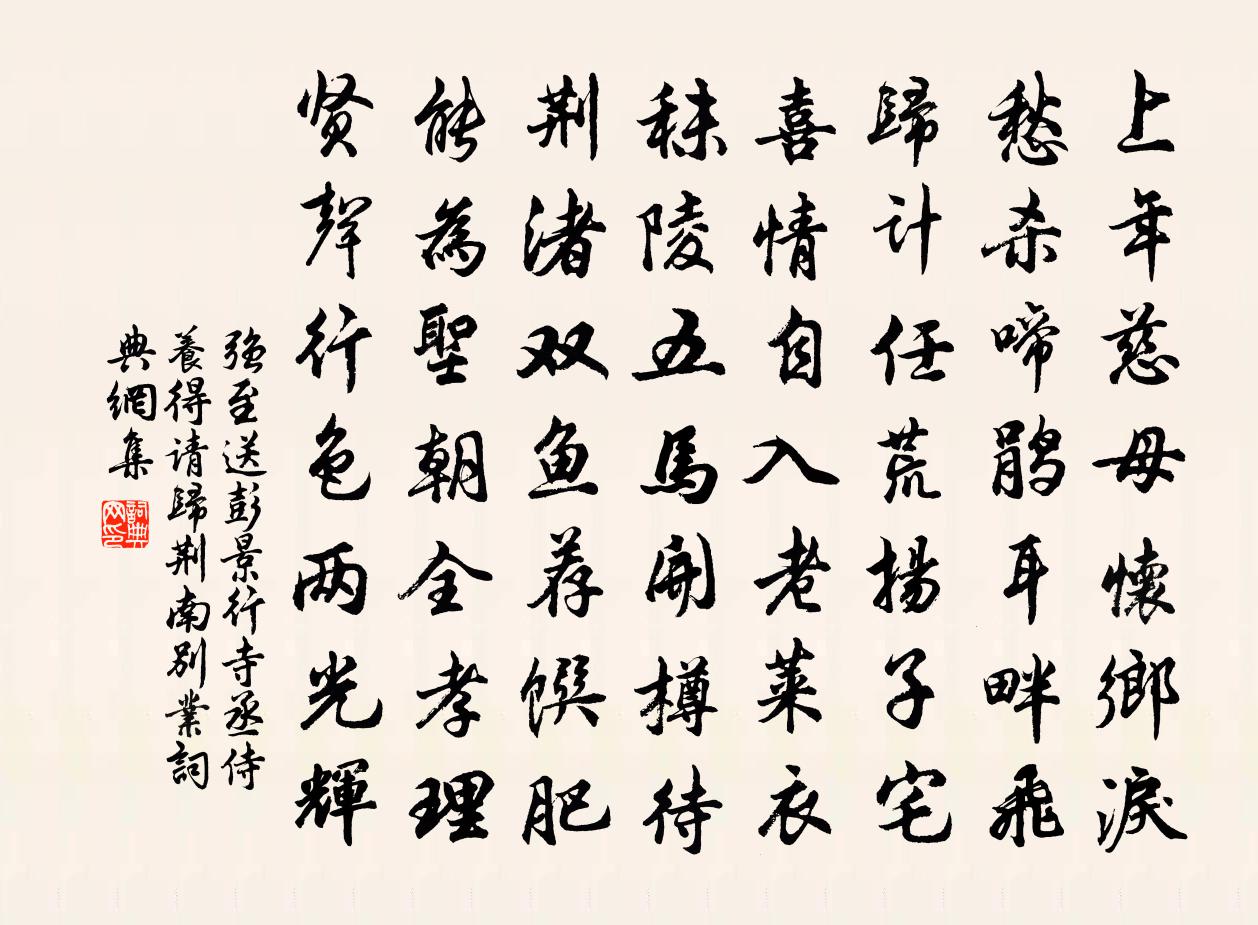 上年慈母懷鄉淚
愁杀啼鹃耳畔飛
歸计任荒揚子宅
喜情自入老萊衣
秣陵五馬開樽待
荆渚双鱼荐馔肥
能為聖朝全孝理
贤聲行色两光輝
强至送彭景行寺丞侍
養得请歸荆南别業詞
典網集
詞典网印